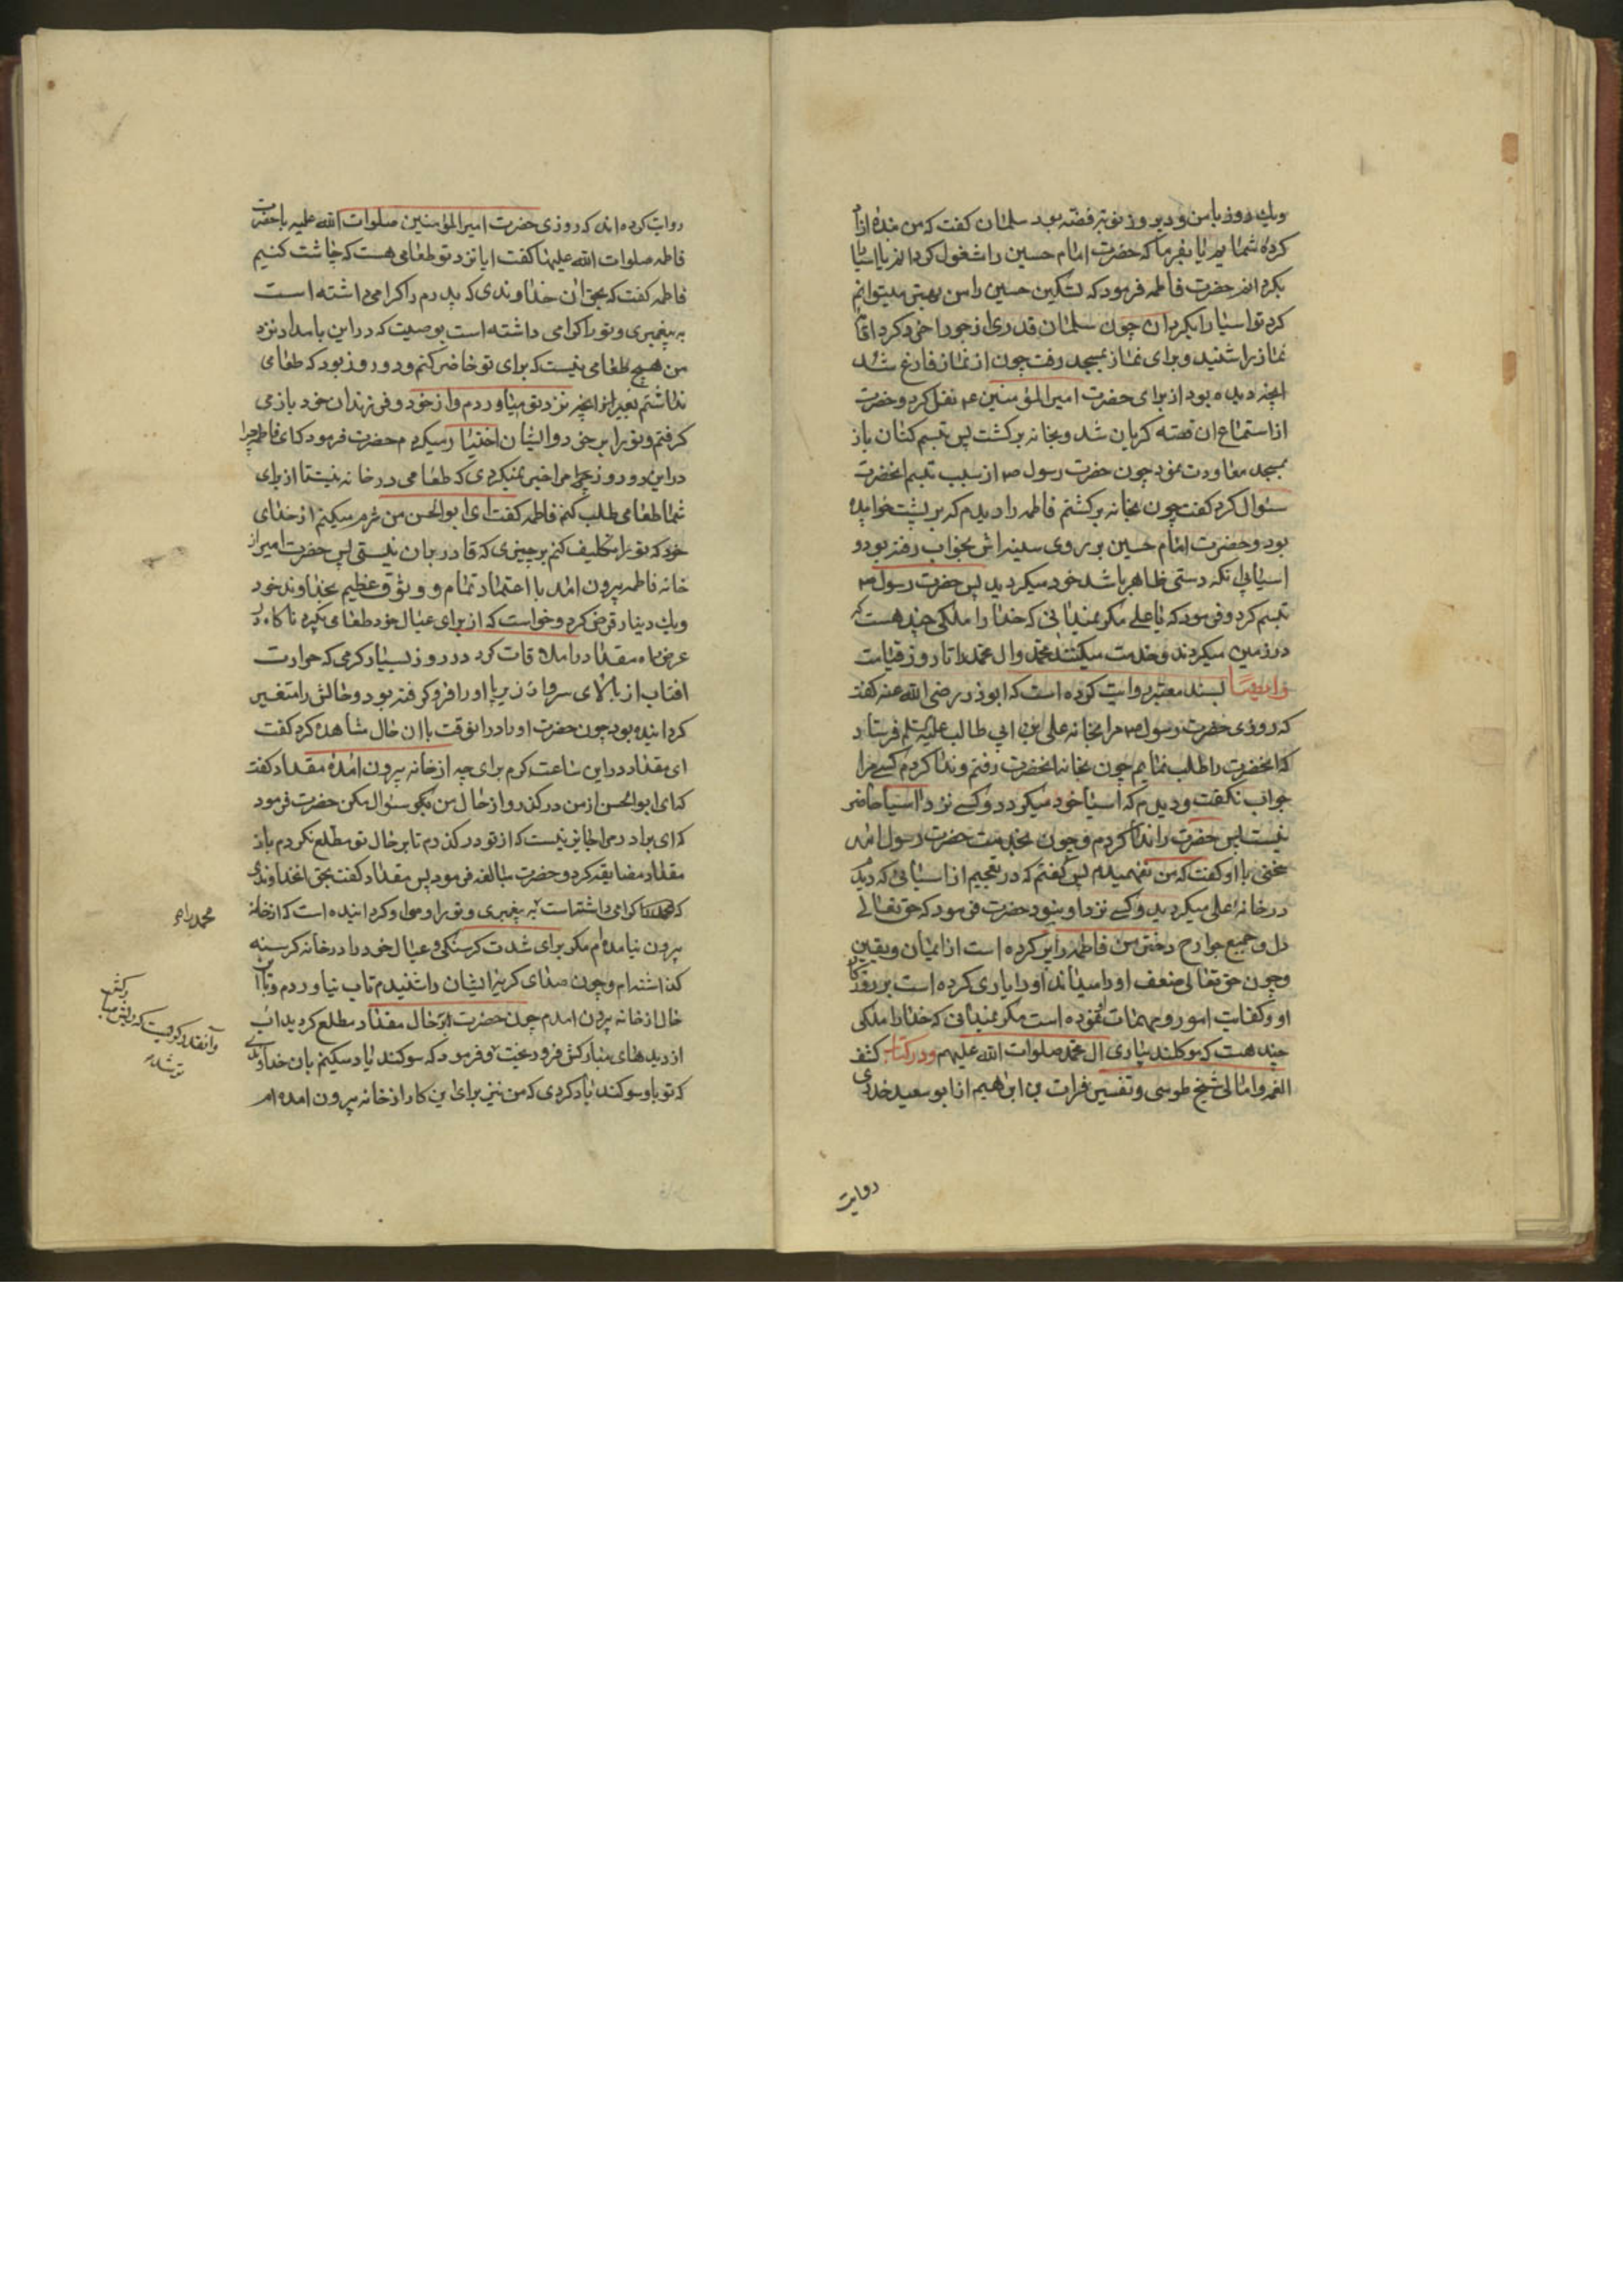 ویك روز با من و دیروز نوبه فضه بود سلمان كفت كه من بنده ازاد
كرده شمایم یا بفرما كه حضرت امام حسین را مشغول كردانم یا اسیا
بكردانم حضرت فاطمه فرمود كه تسكین حسین را من بهتر میتوانم
كرد تو اسیا را بكردان چون سلمان قدری از جو را خورد كرد اقامه
نماز را شنید و برای نماز بمسجد رفت چون از نماز فارغ شد
انچه دیده بود از برای حضرت امیرالمؤمنین ع نقل كرد و حضرت
از استماع ان قصه كریان شد و بخانه بركشت پس تبسم كنان باز
بمسجد معاودت نمود چون حضرت رسول ص از سبب تبسم انحضرت
سئوال كرد كفت چون بخانه بركشتم فاطمه را دیدم كه بر پشت خوابیده
بود و حضرت امام حسین بر روی سینه اش بخواب رفته بود و
اسیا بی انكه دستی ظاهر باشد خود میكردید پس حضرت رسول ص
تبسم كرد و فرمود كه یا علی مكر نمیدانی كه خدا را ملكی چند هست كه
در زمین میكردند و خدمت میكنند محمد وال محمد را تا روز قیامت
و ایضًا بسند معتبر روایت كرده است كه ابوذر رضی الله عنه كفت
كه روزی حضرت رسول ص مرا بخانه علی بن ابی طالب علیه السلم فرستاد
كه انحضرت را طلب نمایم چون بخانه انحضرت رفتم و ندا كردم كسی مرا
جواب نكفت و دیدم كه اسیا خود میكردد و كسی نزد اسیا حاضر
نیست پس حضرت را ندا كردم و چون بخدمت حضرت رسول امد
سخنی با او كفت كه من نفهمیدم پس كفتم كه در تعجبم از اسیائی كه دیدم
در خانه علی میكردید و كسی نزد او نبود حضرت فرمود كه حق تعالی
دل و جمیع جوارح دختر من فاطمه را پر كرده است از ایمان و یقین
و چون حق تعالی ضعف او را میداند او را یاری كرده است بر روزكار
او و كفایت امور و مهمات نموده است مكر نمیدانی كه خدا را ملكی
چند هست كه موكلند بیاری ال محمد صلوات الله علیهم و در كتاب كشف
الغمه و امالی شیخ طوسی و تفسیر فرات بن ابراهیم از ابو سعید خدری
روایت
روایت كرده اند كه روزی حضرت امیرالمؤمنین صلوات الله علیه با حضرت
فاطمه صلوات الله علیها كفت ایا نزد تو طعامی هست كه چاشت كنیم
فاطمه كفت كه بحق ان خداوندی كه پدرم را كرامی داشته است
به پیغمبری و تو را كرامی داشته است بوصیت كه در این بامداد نزد
من هیچ طعامی نیست كه برای تو حاضر كنم و دو روز بود كه طعامی
نداشتم بغیر از انچه نزد تو میاوردم و از خود و فرزندان خود باز می
كرفتم و تو را بر خود و ایشان اختیار میكردم حضرت فرمود كه ای فاطمه چرا
در این دو روز مرا خبر نمیكردی كه طعامی در خانه نیست تا از برای
شما طعامی طلب كنم فاطمه كفت ای ابو الحسن من شرم میكنم از خدای
خود كه تو را تكلیف كنم بر چیزی كه قادر بان نیستی پس حضرت امیر از
خانه فاطمه بیرون امد با اعتماد تمام و وثوق عظیم بخداوند خود
ویك دینار قرض كرد و خواست كه از برای عیال خود طعامی بكیرد ناكاه در
عرض راه مقداد را ملاقات كرد در روز بسیار كرمی كه حرارت
افتاب از بالای سر و از زیر پا او را فرو كرفته بود و حالش را متغیر
كردانیده بود چون حضرت او را در انوقت با ان حال مشاهده كرد كفت
ای مقداد در این ساعت كرم برای چه از خانه بیرون امدۀ مقداد كفت
كه ای ابو الحسن از من در كذر و از حال من مكو سئوال مكن حضرت فرمود
كه ای برادر مرا جایز نیست كه از تو در كذرم تا بر حال تو مطلع نكردم باز
مقداد مضایقه كرد و حضرت مبالغه فرمود پس مقداد كفت بحق انخداوندی
كه محمد را كرامی داشته است به پیغمبری و تو را وصی او كردانیده است كه از خانه
بیرون نیامده ام مكر برای شدت كرسنكی و عیال خود را در خانه كرسنه
كذاشته ام و چون صدای كریه ایشان را شنیدم تاب نیاوردم و با این
حال از خانه بیرون امدم چون حضرت بر حال مقداد مطلع كردید اب
از دیدهای مباركش فرو ریخت و فرمود كه سوكند یاد میكنم بان خداوندی
كه تو باو سوكند یاد كردی كه من نیز برای این كار از خانه بیرون امده ام
محمد را